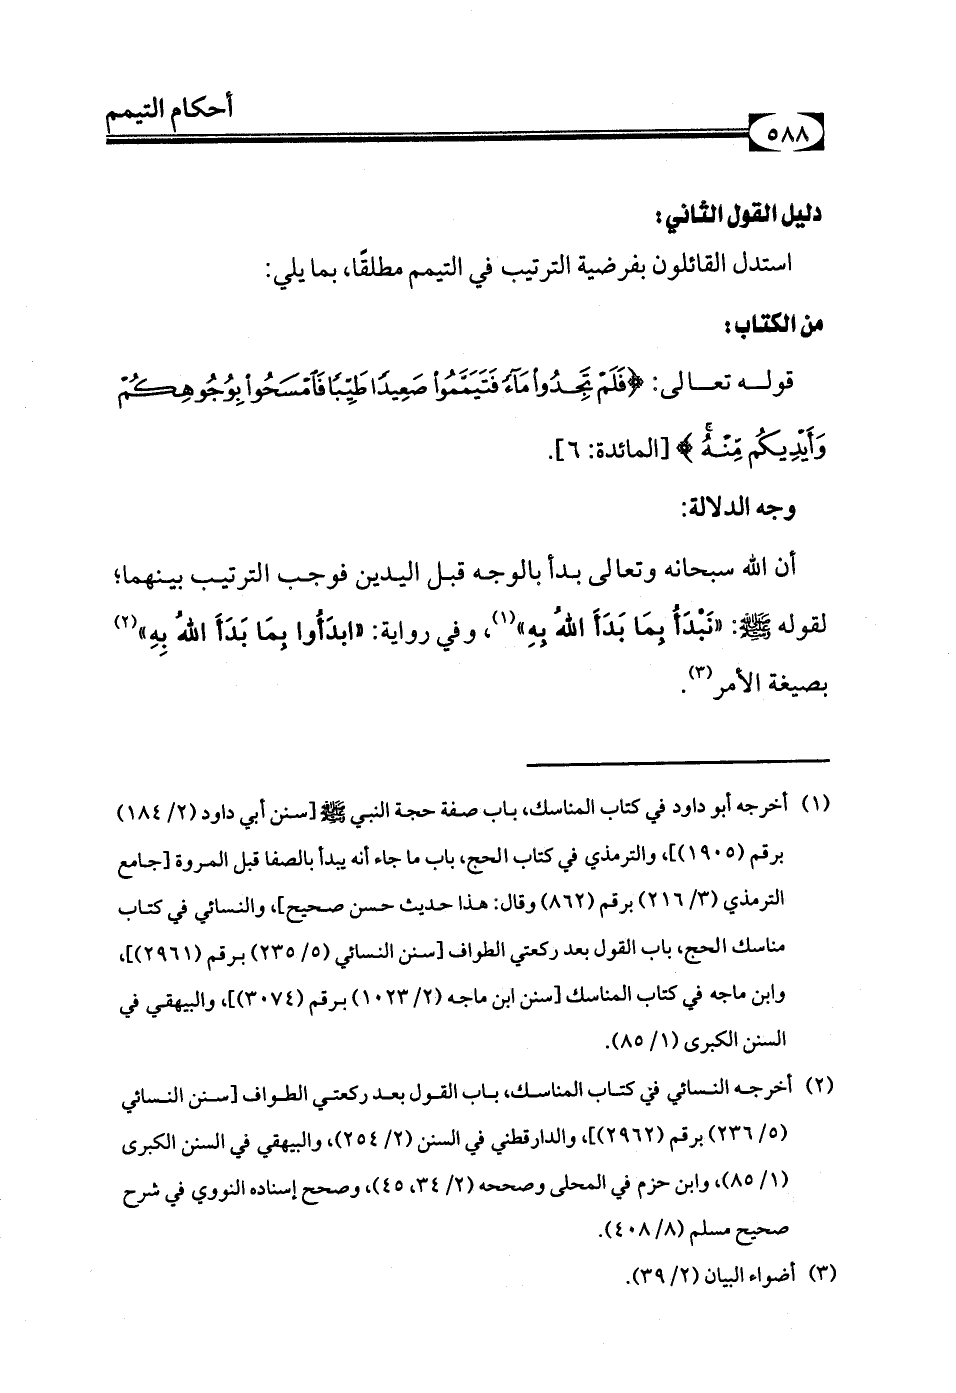 أحكام التيمم
٥٨٨
دليل القول الثاني:
استدل القائلون بفرضية الترتيب في التيمم مطلقًا، بما يلي:
من الكتاب:
قولـه تعـالى: ﴿فَلَمْ تَجِدُوا۟ مَآءً فَتَيَمَّمُوا۟ صَعِيدًا طَيِّبًا فَٱمْسَحُوا۟ بِوُجُوهِكُمْ
وَأَيْدِيكُم مِّنْهُ ۚ﴾ [المائدة: ٦].
وجه الدلالة:
أن الله سبحانه وتعالى بدأ بالوجه قبل اليدين فوجب الترتيب بينهما؛
لقوله ﷺ: «نَبْدَأُ بِمَا بَدَأَ اللهُ بِهِ»(١)، وفي رواية: «ابدَأُوا بِمَا بَدَأَ اللهُ بِهِ»(٢)
بصيغة الأمر(٣).
(١) أخرجه أبو داود في كتاب المناسك، باب صفة حجة النبي ﷺ [سنن أبي داود (٢/ ١٨٤)
برقم (١٩٠٥)]، والترمذي في كتاب الحج، باب ما جاء أنه يبدأ بالصفا قبل المروة [جامع
الترمذي (٣/ ٢١٦) برقم (٨٦٢) وقال: هذا حديث حسن صحيح]، والنسائي في كتاب
مناسك الحج، باب القول بعد ركعتي الطواف [سنن النسائي (٥/ ٢٣٥) برقم (٢٩٦١)]،
وابن ماجه في كتاب المناسك [سنن ابن ماجه (٢/ ١٠٢٣) برقم (٣٠٧٤)]، والبيهقي في
السنن الكبرى (١/ ٨٥).
(٢) أخرجه النسائي في كتاب المناسك، باب القول بعد ركعتي الطواف [سنن النسائي
(٥/ ٢٣٦) برقم (٢٩٦٢)]، والدارقطني في السنن (٢/ ٢٥٤)، والبيهقي في السنن الكبرى
(١/ ٨٥)، وابن حزم في المحلى وصححه (٢/ ٣٤، ٤٥)، وصحح إسناده النووي في شرح
صحيح مسلم (٨/ ٤٠٨).
(٣) أضواء البيان (٢/ ٣٩).